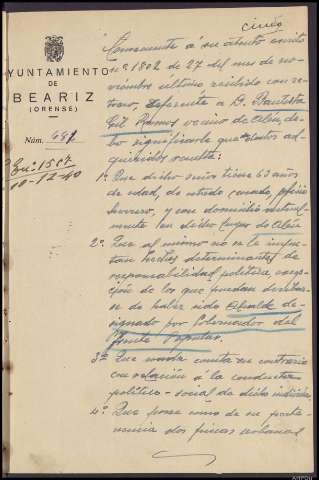 cinco
AYUNTAMIENTO
DE
BEARIZ
(ORENSE)
Núm. 682
En: 1507
10-12-40
Consecuente á su atento escrito
nº 1802 de 27 del mes de no-
viembre último recibido con re-
traso, referente a D. Bautista
Gil Ramos vecino de
bo significarle que datos ad-
quiridos resulta:
1º Que dicho señor tiene 63 años
de edad, de estado casado, oficio
y con domicilio
mente en dicho lugar de
2º Que al mismo no se le impu-
tan hechos determinantes de
responsabilidad política, excep-
ción de los que puedan derivar-
se de haber sido Alcalde de-
signado por Gobernador del
Frente Popular.
3º Que nada consta en contrario
con relación á la conducta
político-social de dicho individuo
4º Que posee como de su perte-
nencia dos fincas urbanas